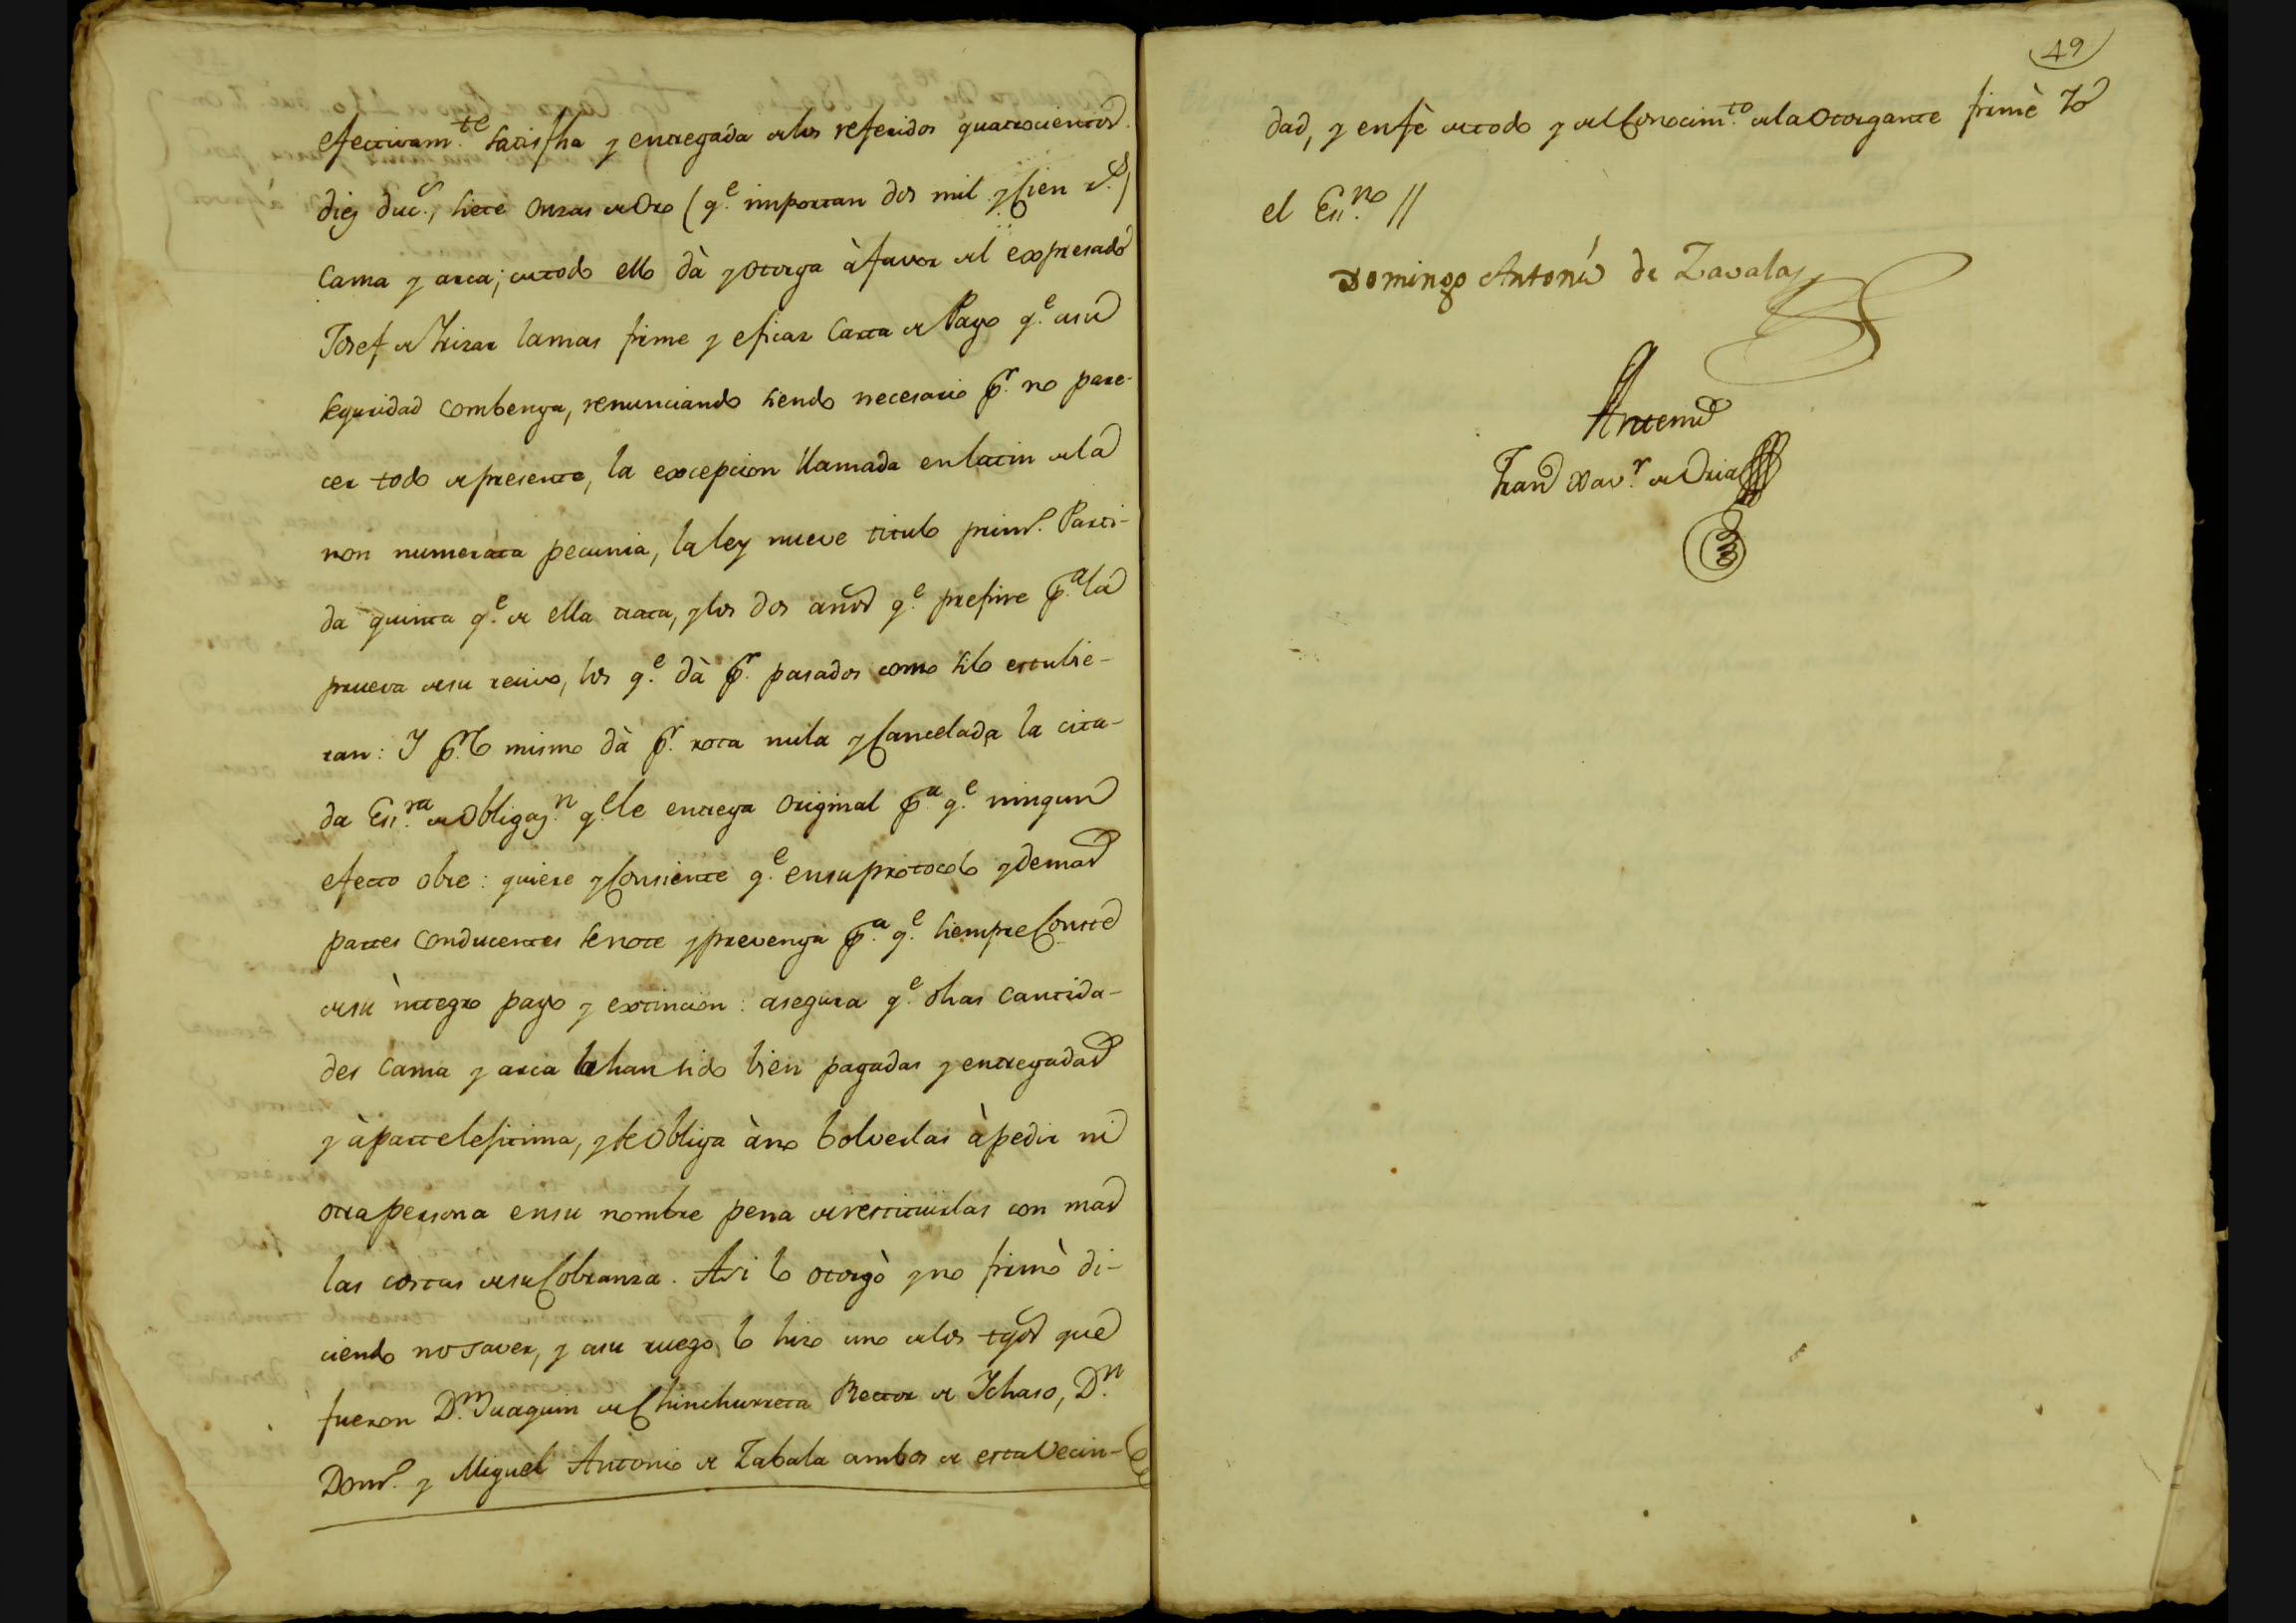 efectivam.te satisfha y entregada de los referidos quatrocientos
diez duc.s, siete onzas de Oro (q.e importan dos mil y Cien r.s)
Cama y arca; de todo ello dà y otorga à favor del expresado
Josef de Irizar la mas firme y eficaz Carta de Pago q.e a su
seguridad combenga, renunciando siendo necesario p.r no pare-
cer todo de presente, la excepcion llamada en latin de la
non numerata pecunia, la ley nueve titulo prim.o Parti-
da quinta q.e de ella trata, y los dos años q.e prefine p.a la
prueva de su recivo, los q.e dà p.r pasados como si lo estubie-
ran: Y p.r lo mismo dà p.r rota nula y Cancelada la cita-
da Ess.ra de Obligaz.n q.e le entrega Original p.a q.e ningun
efecto obre: quiere y Consiente q.e en su protocolo y demas
partes Conducentes se note y prevenga p.a q.e siempre Conste
de su integro pago y extincion: asegura q.e dhas Cantida-
des Cama y arca le han sido bien pagadas y entregadas
y à parte lexitima, y se Obliga à no bolverlas à pedir ni
otra persona en su nombre pena de restituirlas con mas
las costas de su Cobranza. Asi lo otorgò y no firmò di-
ciendo no saver, y a su ruego lo hizo uno de los tgos que
fueron D.n Juaquin de Chinchurreta Rector de Ichaso, D.n
Dom.o y Miguel Antonio de Zabala ambos de esta Vecin-
49
dad, y en fè de todo y del Conocim.to de la Otorgante firmè Yo
el Ess.no //
Domingo Antonio de Zavala
Antemi
Fran.co Xav.r de Oria